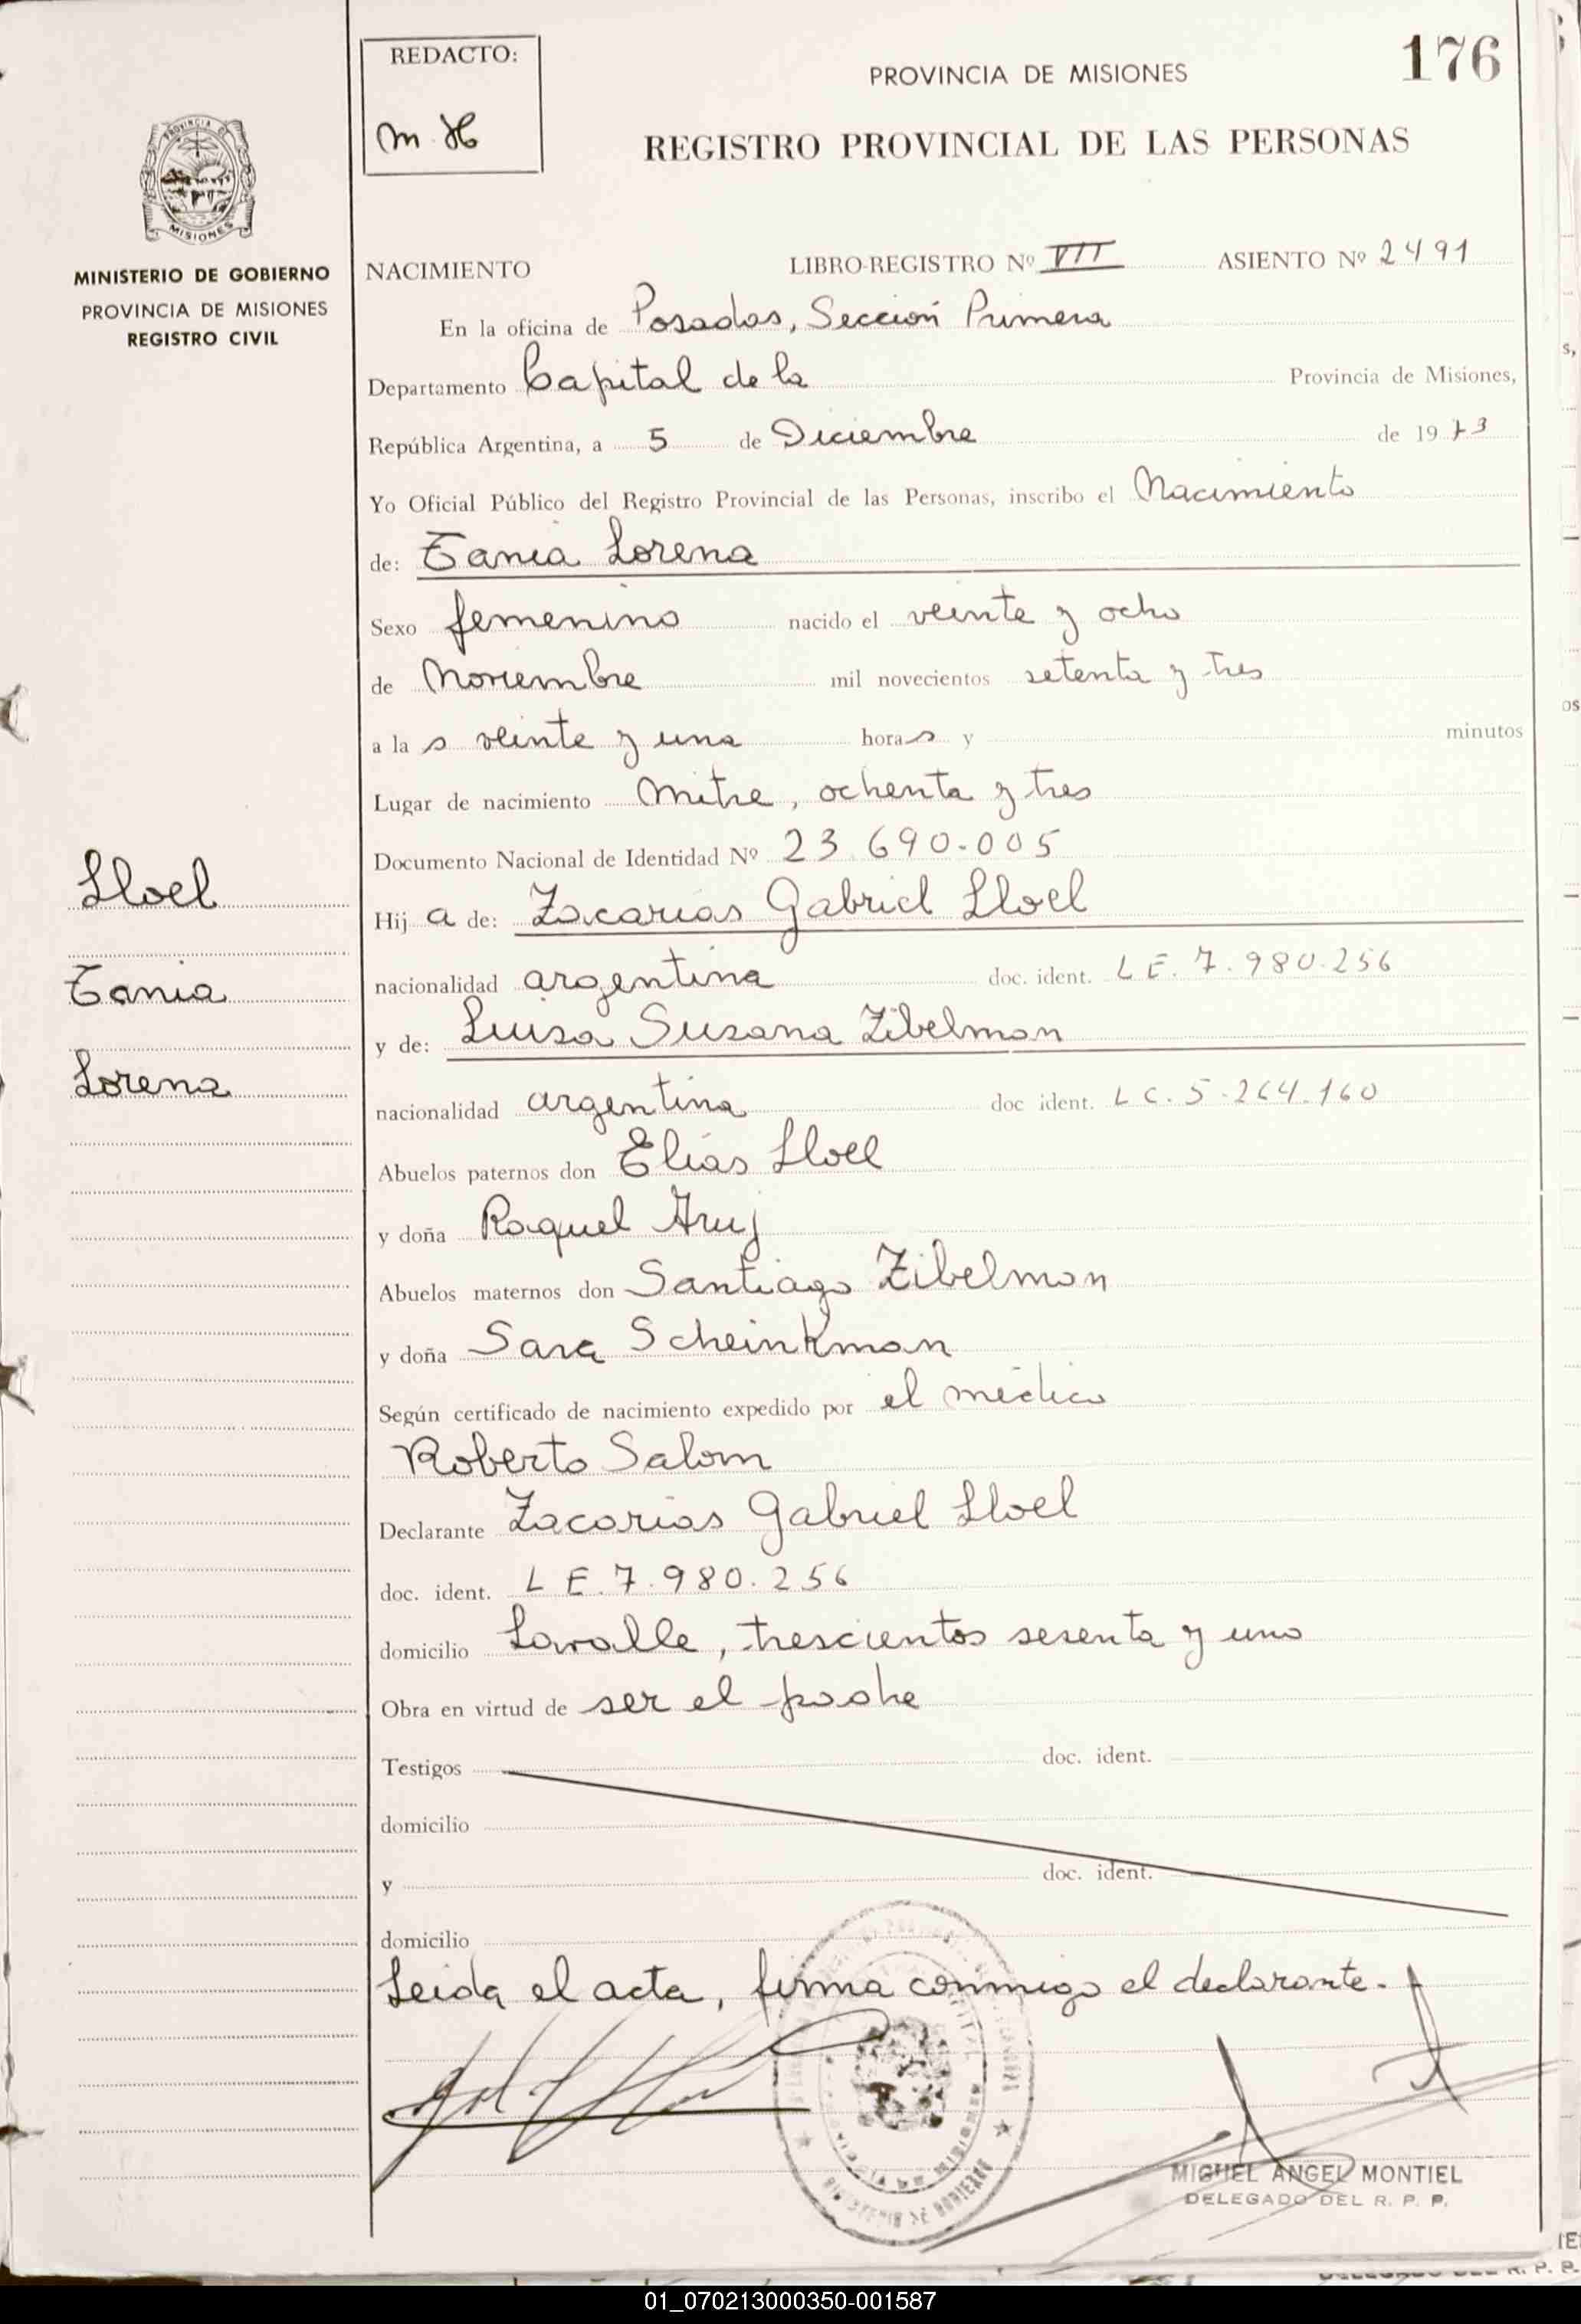 REDACTO:
m. H
PROVINCIA DE MISIONES
176
REGISTRO PROVINCIAL DE LAS PERSONAS
PROVINCIA DE
MISIONES
MINISTERIO DE GOBIERNO
PROVINCIA DE MISIONES
REGISTRO CIVIL
NACIMIENTO LIBRO-REGISTRO Nº VII ASIENTO Nº 2491
En la oficina de Posadas, Sección Primera
Departamento Capital de la Provincia de Misiones,
República Argentina, a 5 de Diciembre de 1973
Yo Oficial Público del Registro Provincial de las Personas, inscribo el Nacimiento
de: Tania Lorena
Sexo femenino nacido el veinte y ocho
de Noviembre mil novecientos setenta y tres
a la s veinte y una hora s y minutos
Lugar de nacimiento Mitre, ochenta y tres
Documento Nacional de Identidad Nº 23.690.005
Hij a de: Zacarias Gabriel Lloel
nacionalidad argentina doc. ident. L E. 7.980.256
y de: Luisa Susana Zibelman
nacionalidad argentina doc ident. L C. 5.264.160
Abuelos paternos don Elías Lloel
y doña Raquel Aruj
Abuelos maternos don Santiago Zibelman
y doña Sara Scheinkman
Según certificado de nacimiento expedido por el médico
Roberto Salom
Declarante Zacarias Gabriel Lloel
doc. ident. L E. 7.980.256
domicilio Lavalle, trescientos sesenta y uno
Obra en virtud de ser el padre
Testigos doc. ident.
domicilio
y doc. ident.
domicilio
Leida el acta, firma conmigo el declarante.
Lloel
Tania
Lorena
MINISTERIO DE GOBIERNO
MIGUEL ANGEL MONTIEL
DELEGADO DEL R. P. P.
01_070213000350-001587